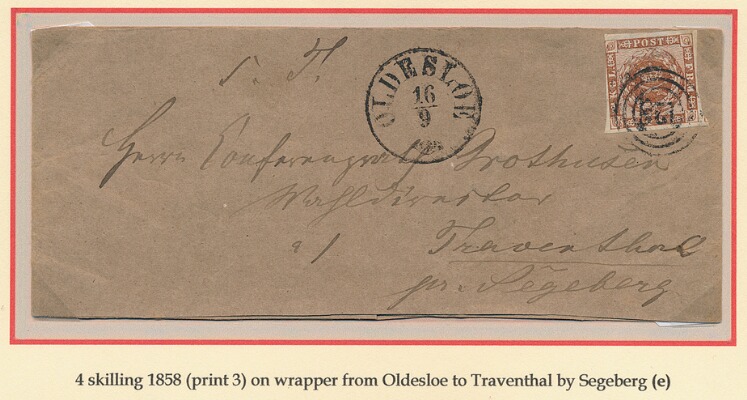 S. T.
OLDESLOE
16
9
KGL POST FRM
Herrn Conferenzrath Grothusen
Wahldirector
Traventhal
pr. Segeberg
4 skilling 1858 (print 3) on wrapper from Oldesloe to Traventhal by Segeberg (e)